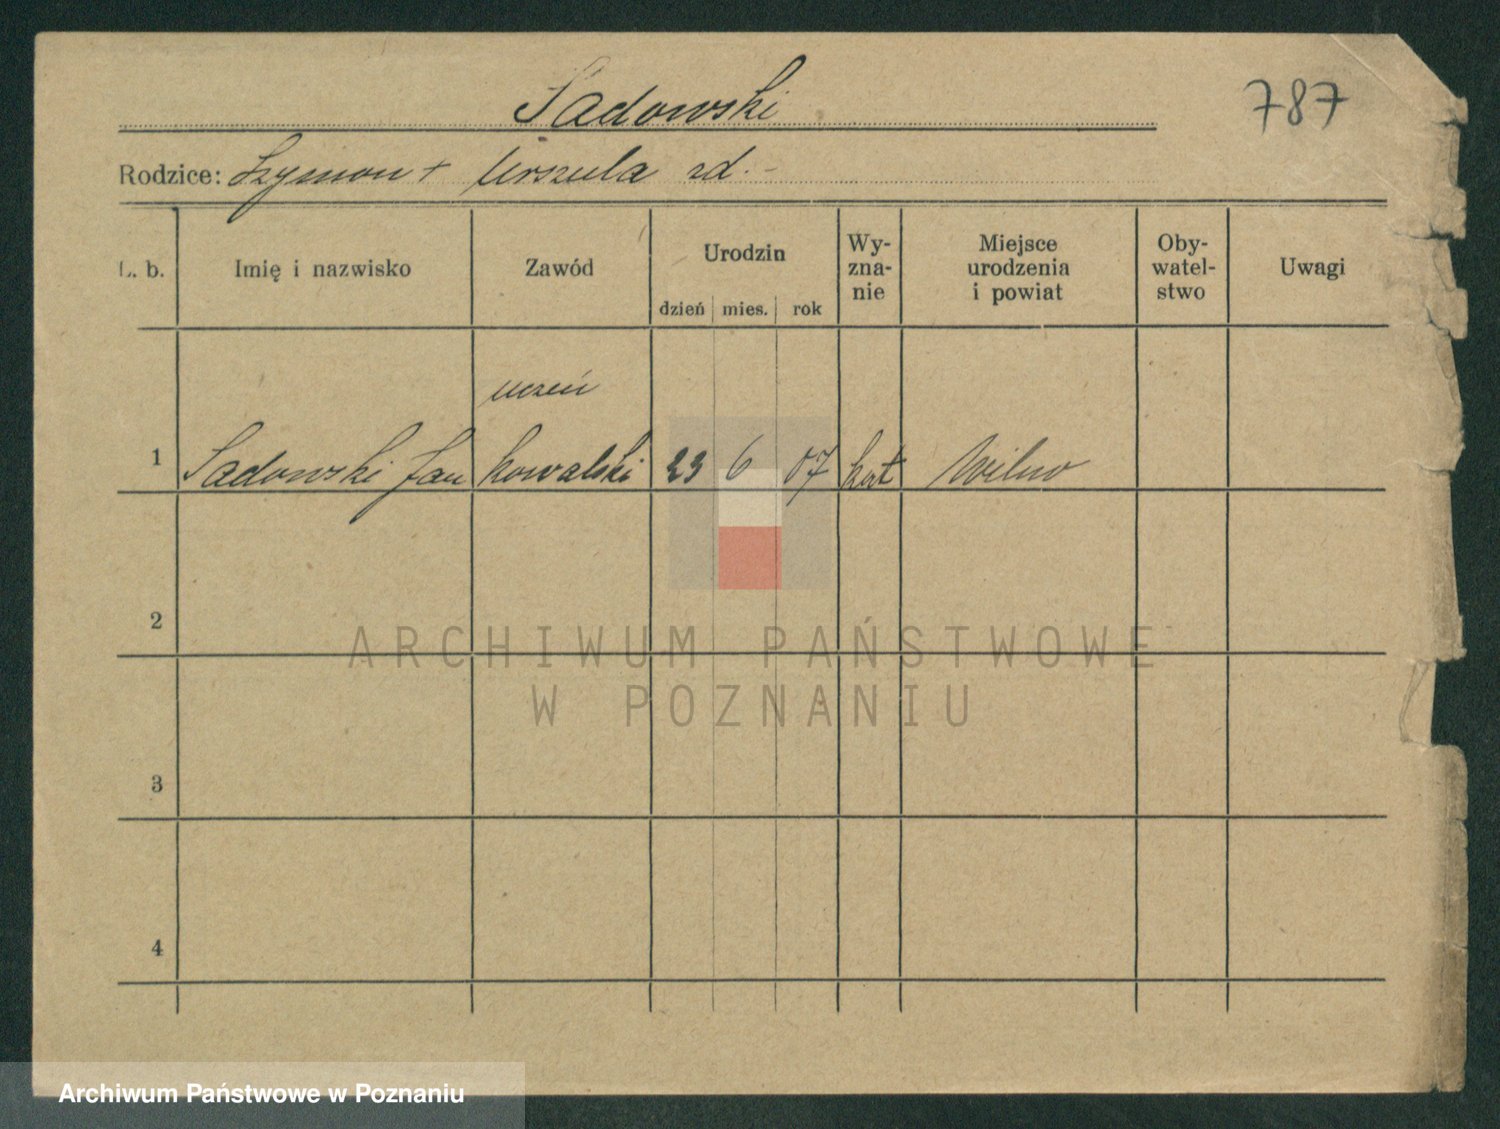 Sadowski
787
Rodzice: Szymon + Urszula zd. -
L. b.
Imię i nazwisko
Zawód
Urodzin
dzień mies. rok
Wy-
zna-
nie
Miejsce
urodzenia
i powiat
Oby-
watel-
stwo
Uwagi
uczeń
1 Sadowski Jan kowalski 23 6 07 kat Wilno
2
ARCHIWUM PAŃSTWOWE
W POZNANIU
3
4
Archiwum Państwowe w Poznaniu